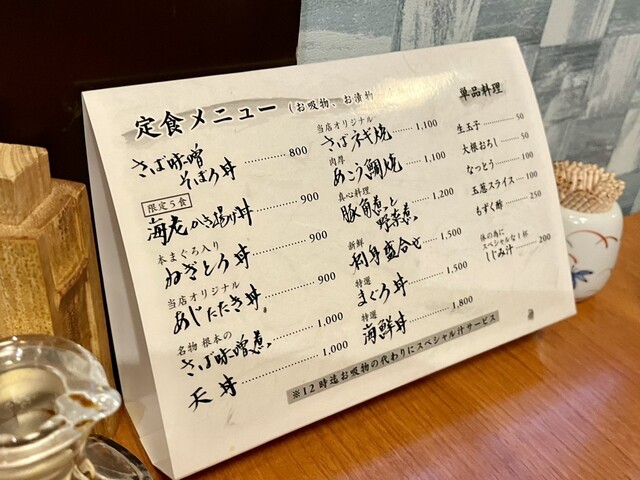 定食メニュー (お吸物、お漬物
さば味噌
そぼろ丼 800
限定5食
海老かき揚げ丼 900
本まぐろ入り
ねぎとろ丼 900
当店オリジナル
あじたたき丼 900
名物 根本の
さば味噌煮 1,000
天丼 1,000
当店オリジナル
さばネギ焼 1,100
肉厚
あこう鯛焼 1,100
真心料理
豚角煮と
野菜煮 1,200
新鮮
刺身盛合せ 1,500
特選
まぐろ丼 1,500
特選
海鮮丼 1,800
単品料理
生玉子 50
大根おろし 50
なっとう 100
玉葱スライス 100
もずく酢 250
体の為に
スペシャルな1杯
しじみ汁 200
※12時迄お吸物の代わりにスペシャル汁サービス